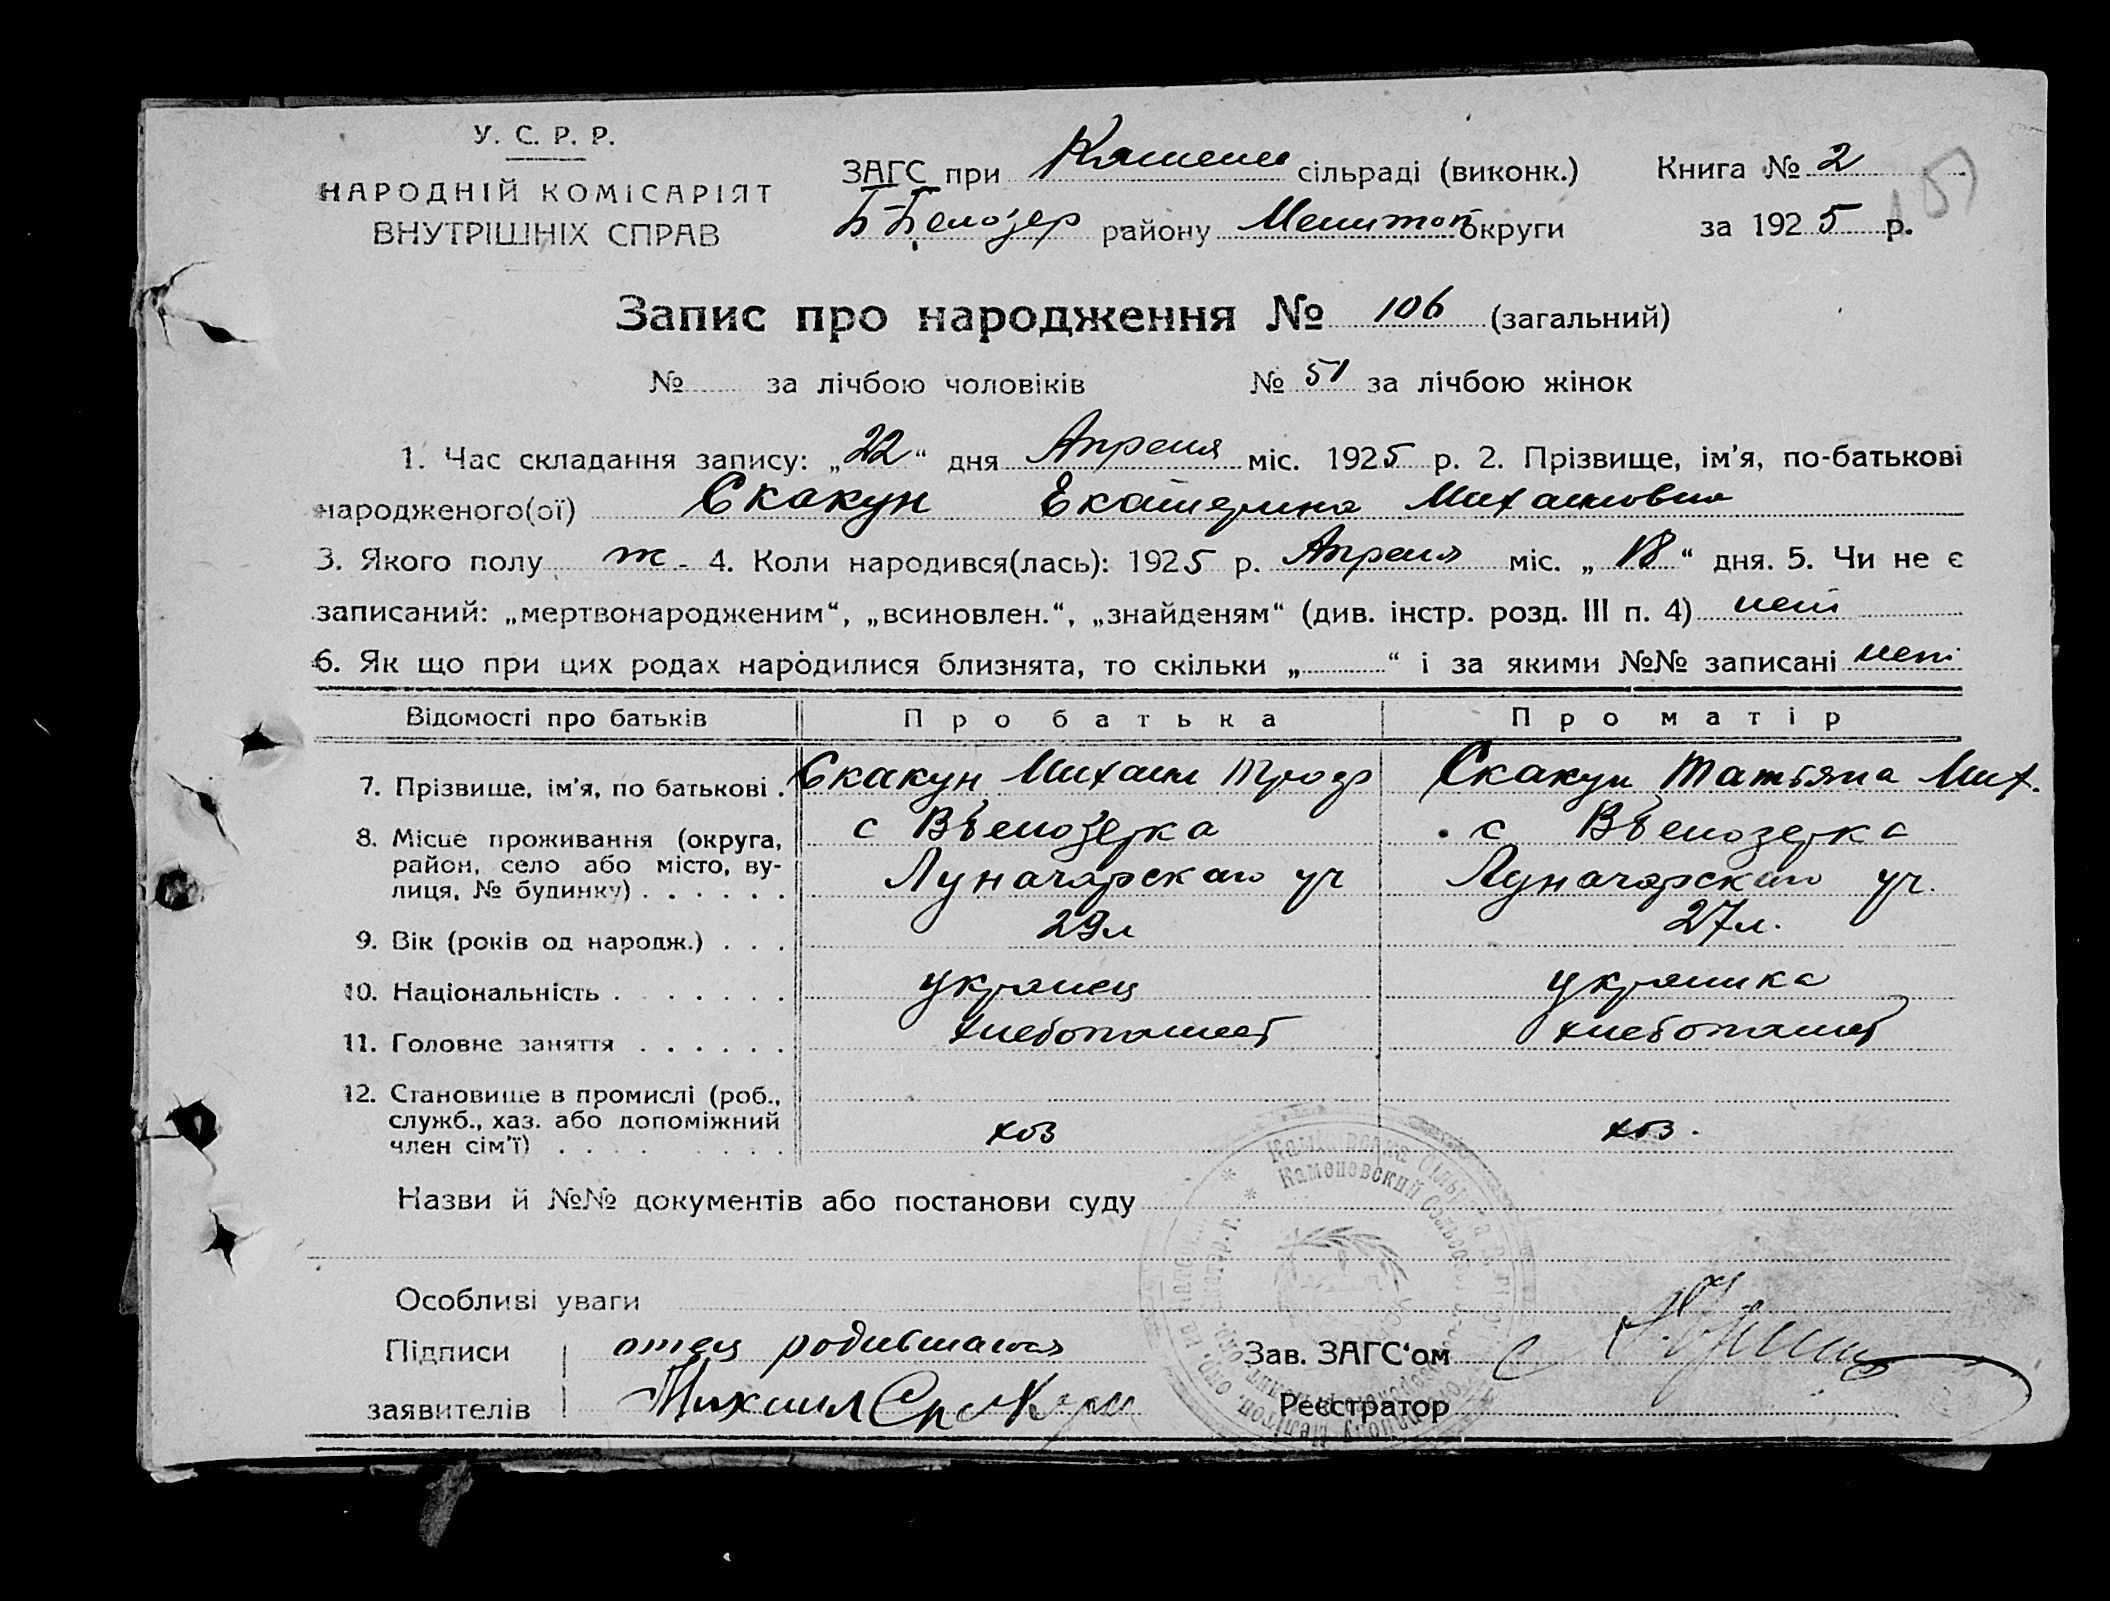 У. С. Р. Р.
НАРОДНІЙ КОМІСАРІЯТ
ВНУТРІШНІХ СПРАВ
ЗАГС при сільраді (виконк.)
Б-Белозер району Мелитоп округи
Книга № 2
за 1925 р.
Запис про народження № 106 (загальний)
№ за лічбою чоловіків № 51 за лічбою жінок
1. Час складання запису: „22“ дня Апреля міс. 1925 р. 2. Прізвище, ім’я, по-батькові
народженого(ої) Скакун Екатерина Михайловна
3. Якого полу ж - 4. Коли народився(лась): 1925 р. Апреля міс. „18“ дня. 5. Чи не є
записаний: „мертвонародженим“, „всиновлен.“, „знайденям“ (див. інстр. розд. III п. 4) нет
6. Як що при цих родах народилися близнята, то скільки „ “ і за якими №№ записані нет
Відомості про батьків Про батька Про матір
7. Прізвище, ім’я, по батькові . Скакун Михаил Скакун Татьяна Мих.
8. Місце проживання (округа, с Вбелозерка с Вбелозерка
район, село або місто, ву-
лиця, № будинку) . . . . . . Луначарскаго уч Луначарскаго уч.
9. Вік (років од народж.) . . . 29л 27л.
10. Національність . . . . . . . украинец украинка
11. Головне заняття . . . . . . хлебопашест хлебопашест
12. Становище в промислі (роб.,
служб., хаз. або допоміжний хоз хоз.
член сім’ї) . . . . . . . .
Назви й №№ документів або постанови суду
Камоновский
Особливі уваги
Підписи отец родившагося Зав. ЗАГС‘ом
заявителів Михаил Скакун Реєстратор